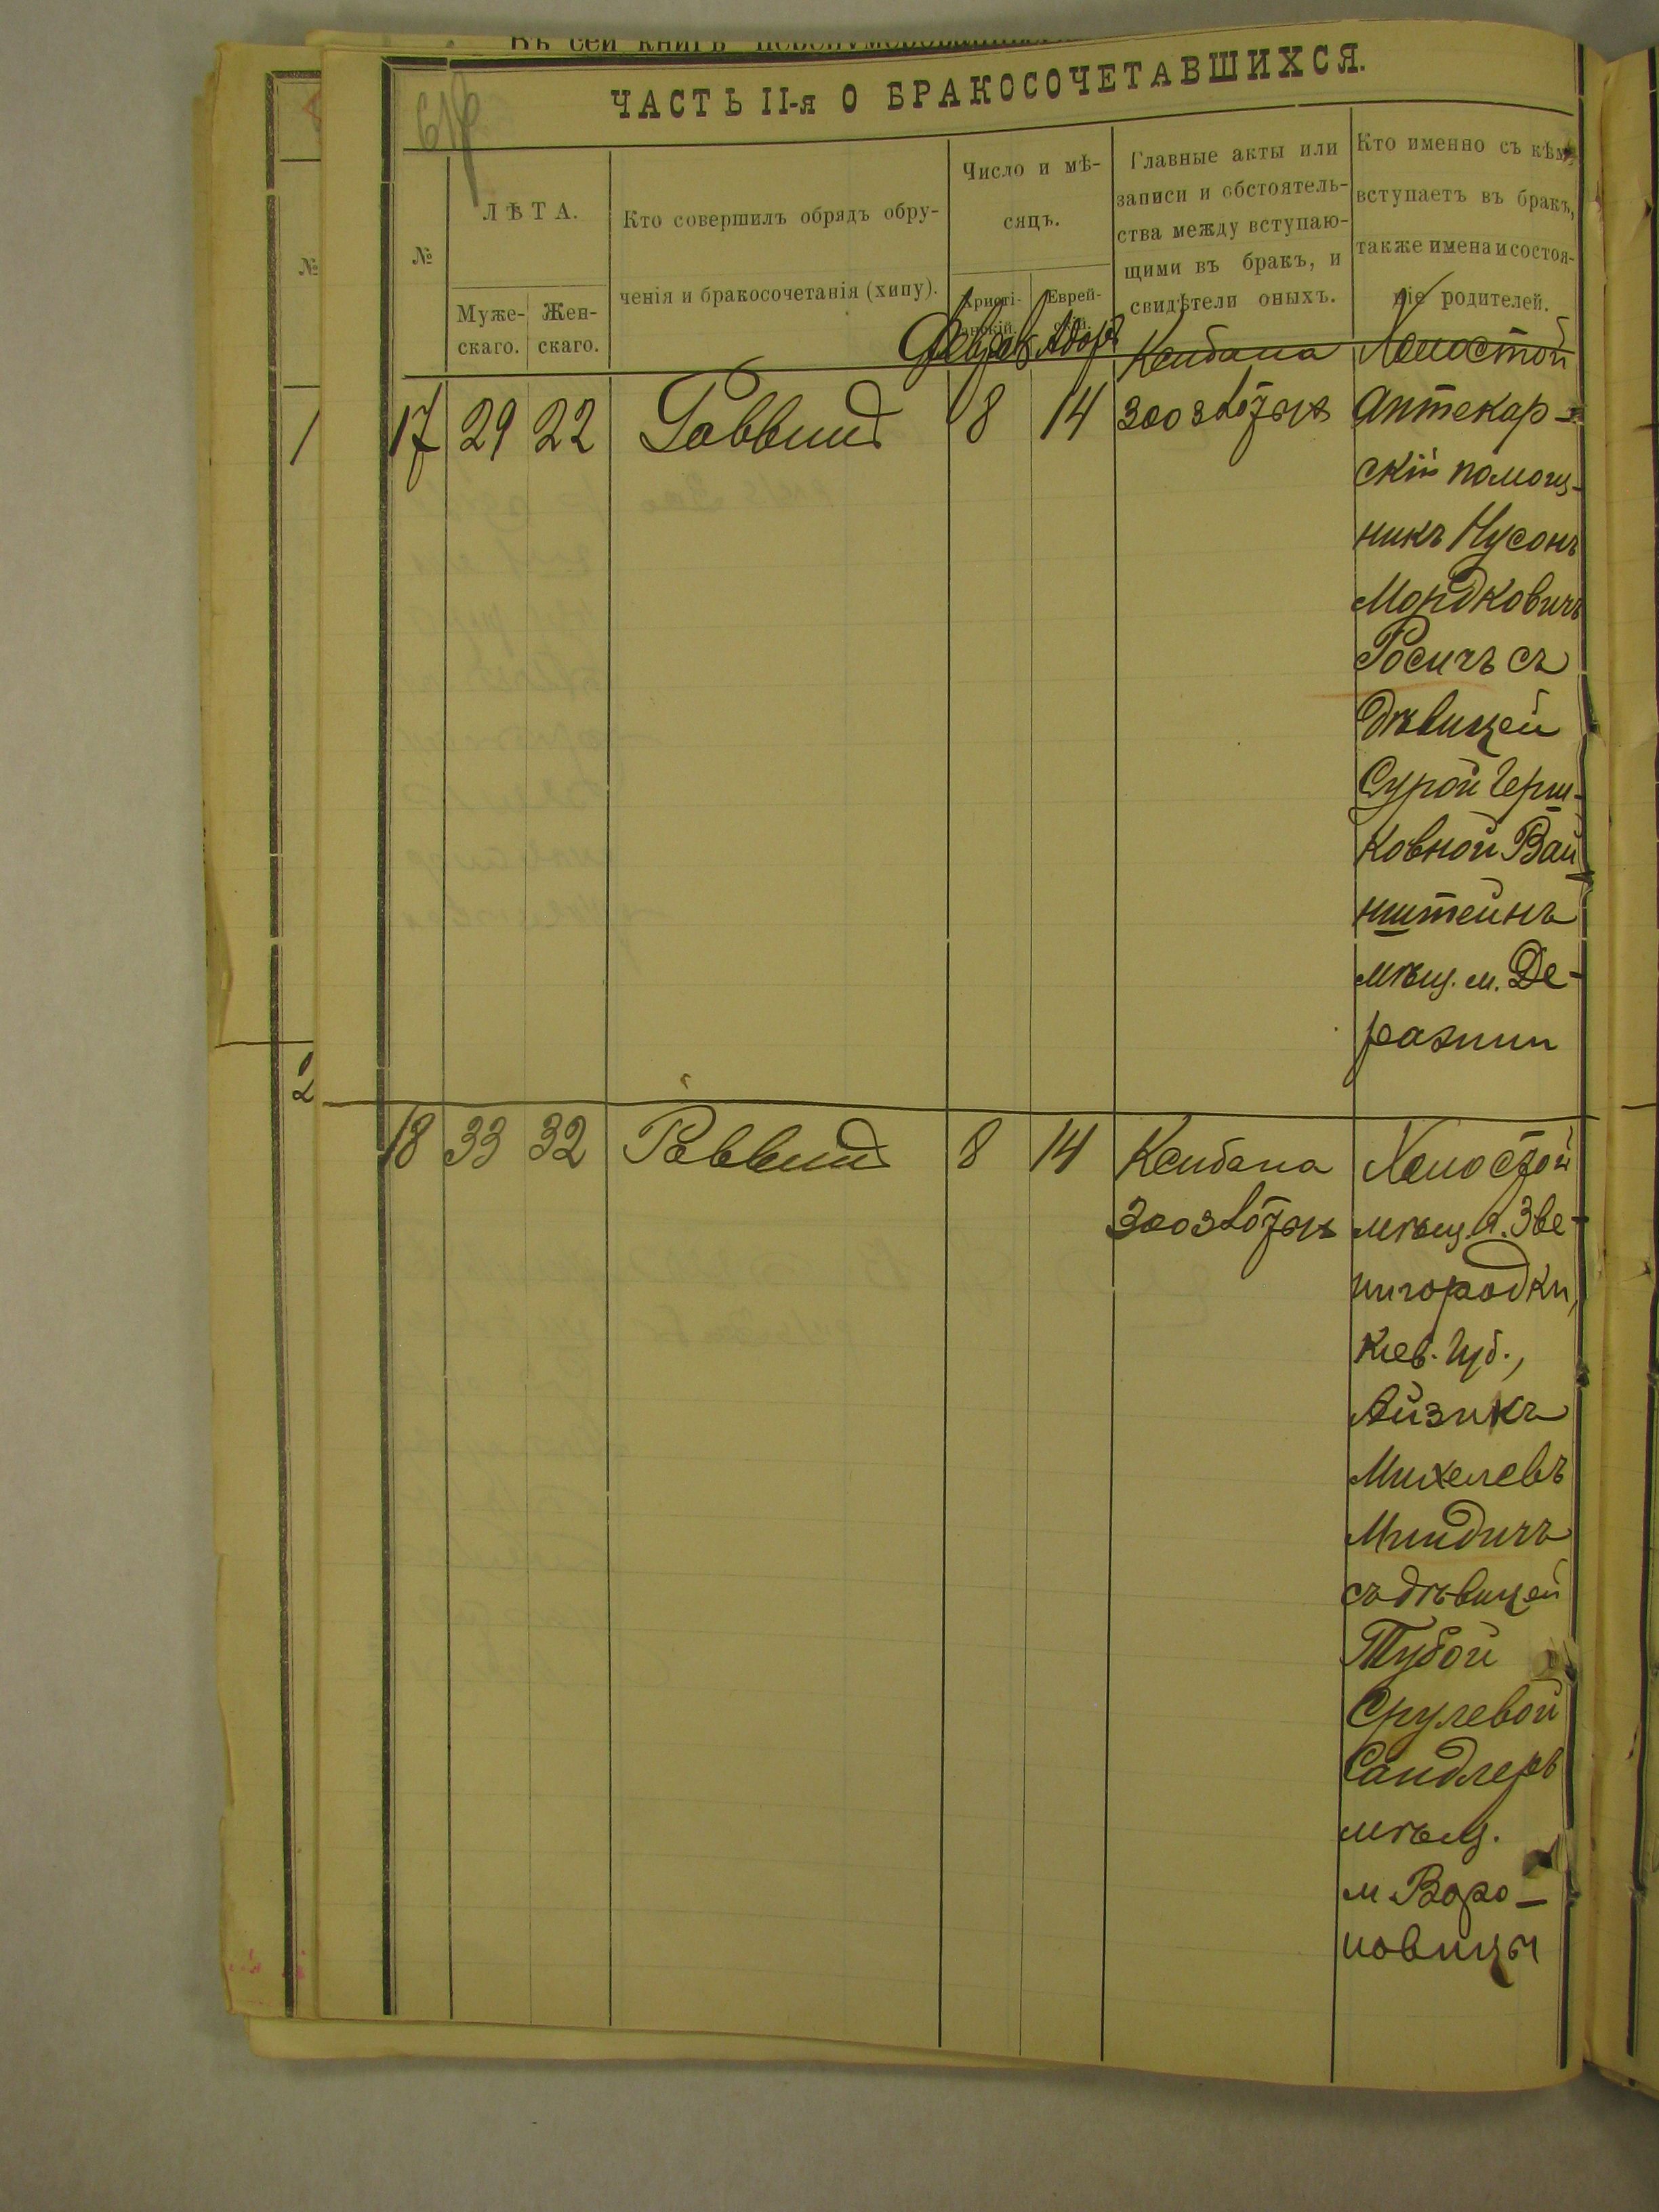 ЧАСТЬ II-я О БРАКОСОЧЕТАВШИХСЯ.
№
ЛѢТА.
Муже-
скаго.
Жен-
скаго.
Кто совершилъ обрядъ обру-
ченія и бракосочетанія (хипу).
Число и мѣ-
сяцъ.
Христі-
анскій.
Еврей-
скій.
Главные акты или
записи и обстоятель-
ства между вступаю-
щими въ бракъ, и
свидѣтели оныхъ.
Кто именно съ кѣмъ
вступаетъ въ бракъ,
также имена и состоя-
ніе родителей.
Феврал Адоръ Ксибана Холостой
17 29 22 Раввинъ 8 14 Аптекар-
скій помощ-
никъ Нусонъ
Мордковичъ
Росичъ съ
дѣвицей
Сурой Герш-
ковной Вай
нштейнъ
мѣщ. м. Де-
ражни
18 33 32 Раввинъ 8 14 Ксибана Холостой
мѣщ. г. Зве-
нигородки,
Кіев. Губ.,
Айзикъ
Михелевъ
Миндичъ
съ дѣвицей
Тубой
Срулевой
Сандлеръ
мѣщ.
м. Воро-
новицы
1
2
№